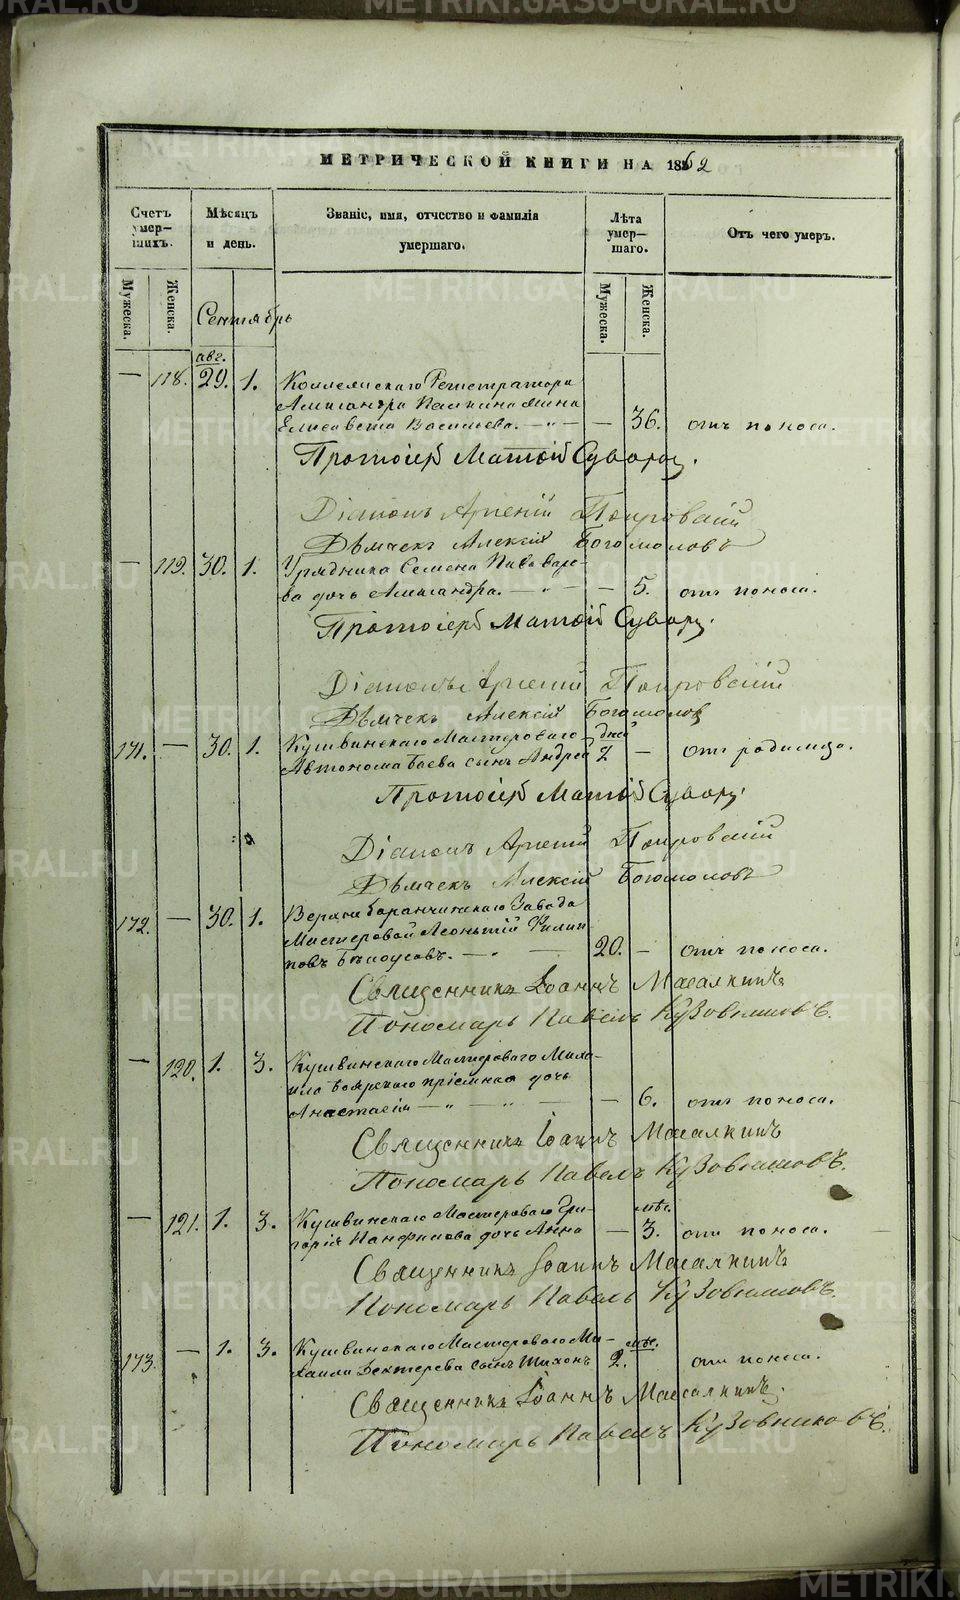 МЕТРИЧЕСКОЙ КНИГИ НА 1862
Счетъ умер—шихъ.
Мѣсяцъ и день.
Званіе, имя, отчество и фамилія умершаго.
Лѣта умер—шаго.
Отъ чего умеръ.
Мужеска.
Женска.
Мужеска.
Женска.
Сентябрь
авг.
— 118. 29. 1. Коллежскаго Регистратора
Александра жена
Елисавета Васильева. — „ — — 36. отъ поноса.
Протоіерей Матөій Суворов.
Діаконъ Арсеній Покровскій
Дьячекъ Алексій Богомоловъ
— 119. 30. 1. Урядника Семена Пивоваро-
ва дочь Александра. — „ — — 5. отъ поноса.
Протоіерей Матөій Суворов.
Діаконъ Арсеній Покровскій
Дьячекъ Алексій Богомолов
171. — 30. 1. Кушвинскаго Мастероваго дней
Автонома Баева сынъ Андрей 7 — отъ родимца.
Протоіерей Матөій Суворов
Діаконъ Арсеній Покровскій
Дьячекъ Алексій Богомоловъ
172. — 30. 1. Верхнебаранчинскаго Завода
Мастеровой Леонтій Филип
повъ Бѣлоусовъ. — „ — 20. — отъ поноса.
Священникъ Іоаннъ Масалкинъ
Пономарь Павелъ Кузовниковъ.
— 120. 1. 3. Кушвинскаго Мастероваго Миха-
ила Боярскаго пріемная дочь
Анастасія — „ — „ — — 6. отъ поноса.
Священникъ Іоаннъ Масалкинъ
Пономарь Павелъ Кузовниковъ.
— 121. 1. 3. Кушвинскаго Мастероваго Гри- мѣс.
горія Панфилова дочь Анна — 3. отъ поноса.
Священникъ Іоаннъ Масалкинъ
Пономарь Павелъ Кузовниковъ.
173. — 1. 3. Кушвинскаго Мастероваго Ми- мѣс.
хаила Дехтерева сынъ Тихонъ 2. отъ поноса.
Священникъ Іоаннъ Масалкинъ.
Пономарь Павелъ Кузовниковъ.
METRIKI.GASO-URAL.RU